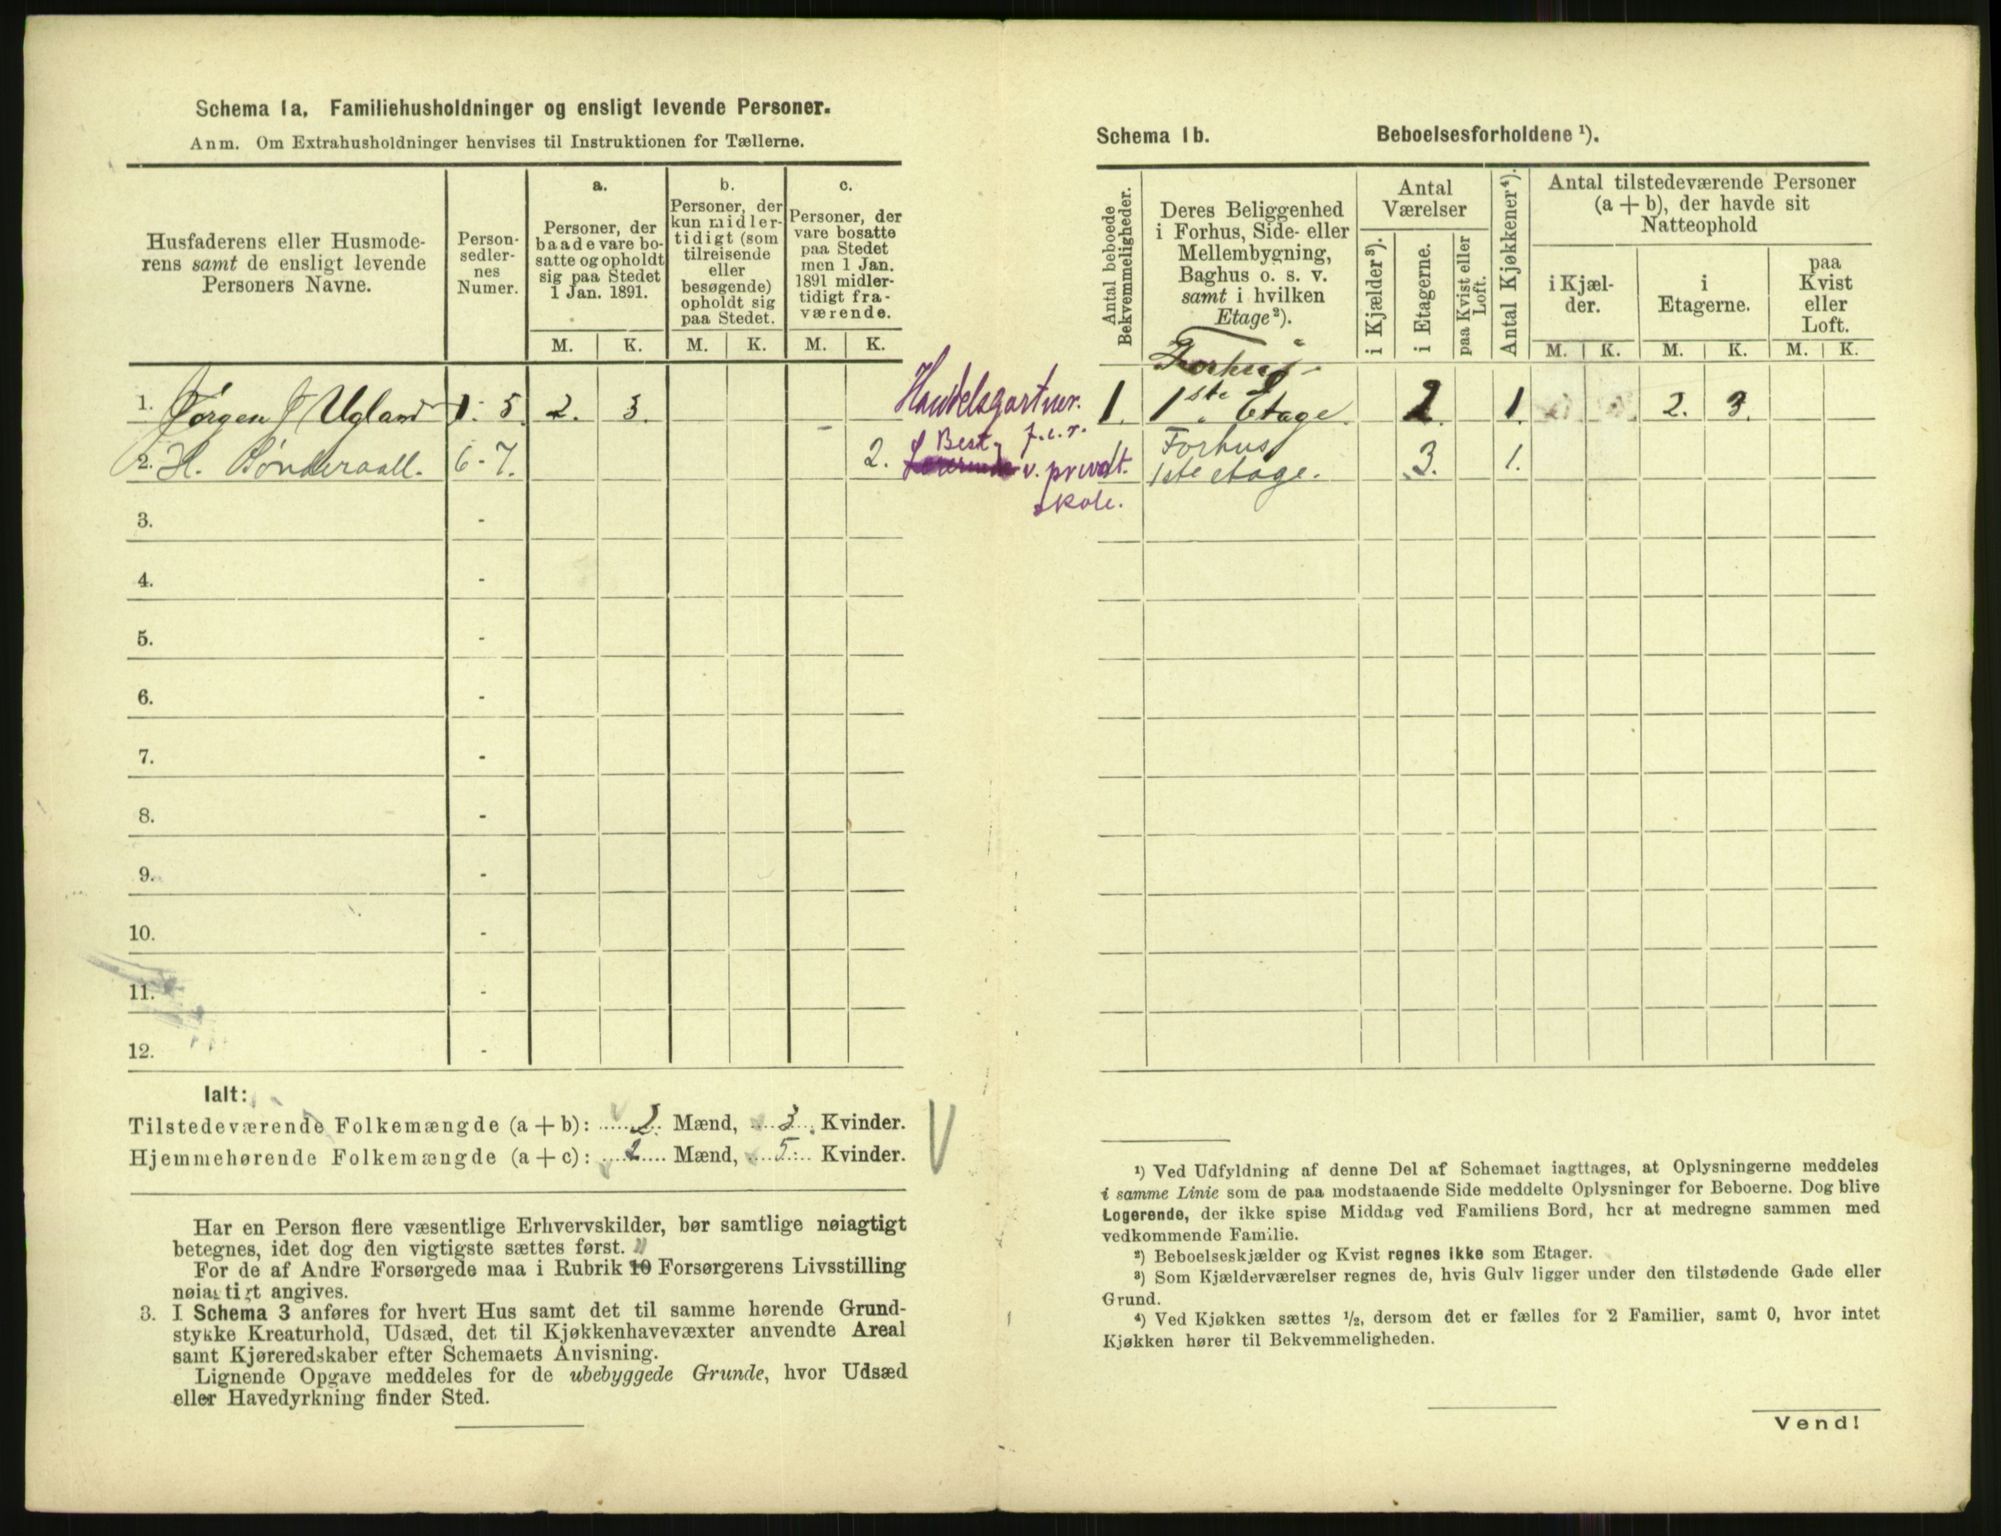 Schema 1a. Familiehusholdninger og ensligt levende Personer.
Anm. Om Extrahusholdninger henvises til Instruktionen for Tællerne.
Husfaderens eller Husmode-
rens samt de ensligt levende
Personers Navne.
Person-
sedler-
nes
Numer.
a.
Personer, der
baade vare bo-
satte og opholdt
sig paa Stedet
1 Jan. 1891.
b.
Personer, der
kun midler-
tidigt (som
tilreisende
eller
besøgende)
opholdt sig
paa Stedet.
c.
Personer, der
vare bosatte
paa Stedet
men 1 Jan.
1891 midler-
tidigt fra-
værende.
M. K. M. K. M. K.
1. Jørgen J Ugland 1 - 5 2. 3. Handelsgartner.
f.e.r.
2. H. Bønderaall. 6 - 7. 2. Best.
Lærerinde v. privat.
skole.
3. -
4. -
5. -
6. -
7. -
8. -
9. -
10. -
11. -
12. -
Ialt:
Tilstedeværende Folkemængde (a + b): 2. Mænd, 3. Kvinder.
Hjemmehørende Folkemængde (a + c): 2 Mænd, 5. Kvinder.
Har en Person flere væsentlige Erhvervskilder, bør samtlige nøiagtigt
betegnes, idet dog den vigtigste sættes først.
For de af Andre Forsørgede maa i Rubrik 10 Forsørgerens Livsstilling
nøiagtigt angives.
3. I Schema 3 anføres for hvert Hus samt det til samme hørende Grund-
stykke Kreaturhold, Udsæd, det til Kjøkkenhavevæxter anvendte Areal
samt Kjøreredskaber efter Schemaets Anvisning.
Lignende Opgave meddeles for de ubebyggede Grunde, hvor Udsæd
eller Havedyrkning finder Sted.
Schema 1b. Beboelsesforholdene ¹).
Antal beboede
Bekvemmeligheder.
Deres Beliggenhed
i Forhus, Side- eller
Mellembygning,
Baghus o. s. v.
samt i hvilken
Etage²).
Antal
Værelser
i Kjælder³).
i Etagerne.
paa Kvist eller
Loft.
Antal Kjøkkener⁴).
Antal tilstedeværende Personer
(a + b), der havde sit
Natteophold
i Kjæl-
der.
i
Etagerne.
paa
Kvist
eller
Loft.
M. K. M. K. M. K.
Forhus
1. 1ste Etage. 2. 1. 2. 3.
Forhus
1ste etage. 3. 1.
¹) Ved Udfyldning af denne Del af Schemaet iagttages, at Oplysningerne meddeles
i samme Linie som de paa modstaaende Side meddelte Oplysninger for Beboerne. Dog blive
Logerende, der ikke spise Middag ved Familiens Bord, her at medregne sammen med
vedkommende Familie.
²) Beboelseskjælder og Kvist regnes ikke som Etager.
³) Som Kjælderværelser regnes de, hvis Gulv ligger under den tilstødende Gade eller
Grund.
⁴) Ved Kjøkken sættes ½, dersom det er fælles for 2 Familier, samt 0, hvor intet
Kjøkken hører til Bekvemmeligheden.
Vend!